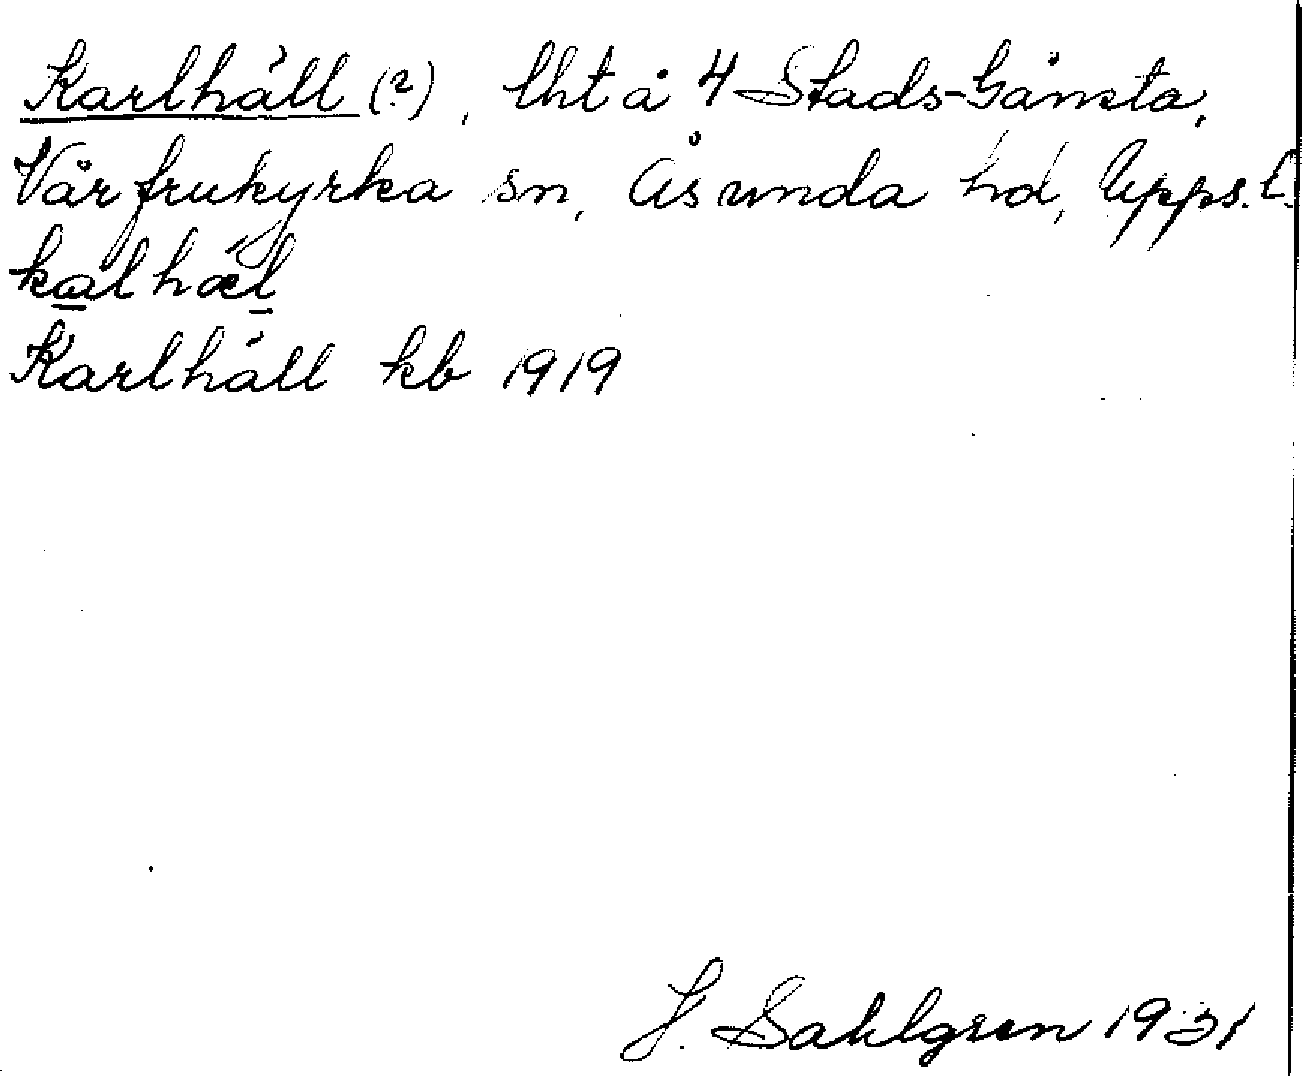 Karlhäll (?), lht å 4 Stads-Gånsta,
Vårfrukyrka sn, Åsunda hd, Upps. l.
kalhæl
Karlhäll kb 1919
J. Sahlgren 1931